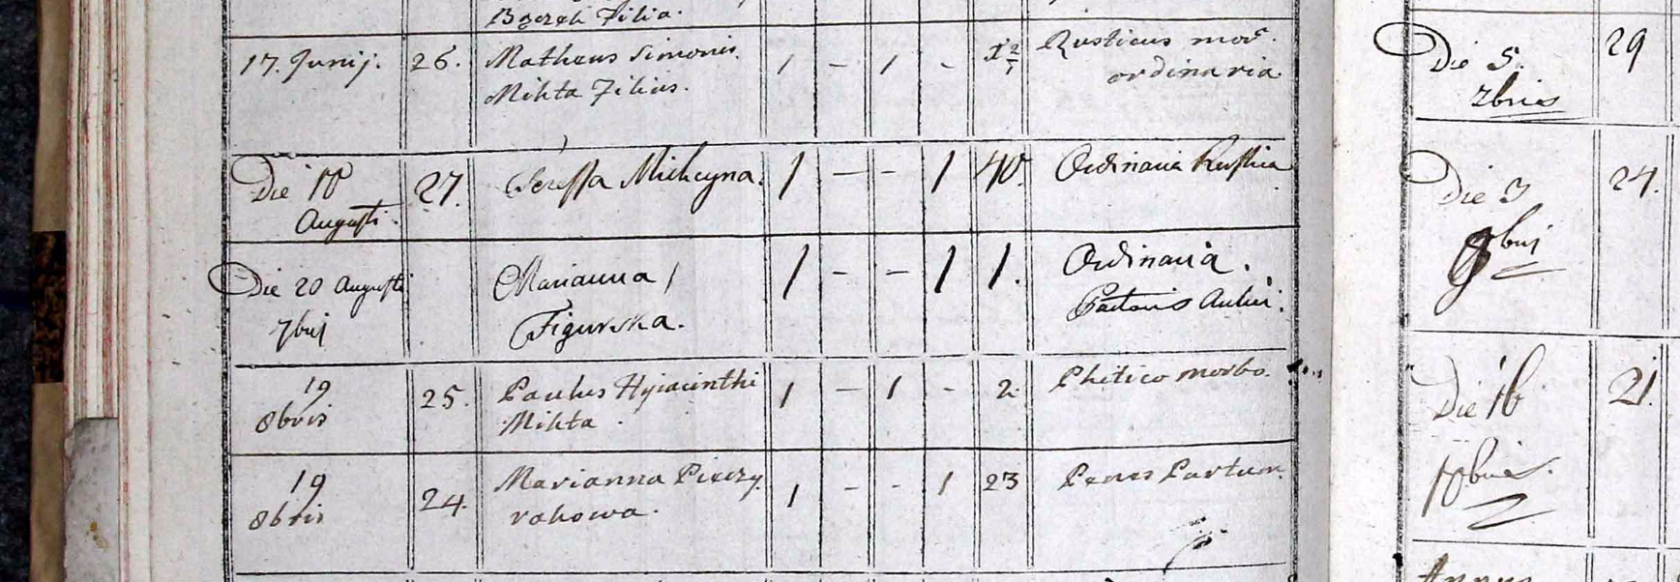 Filia.
17. Junij. 26. Matheus Simonis 1 - 1 - Rusticus mor.
Mikta Filius. ordinaria
Die 18 27. Teressa Mikcyna. 1 - - 1 40. Ordinaria Rustica
Augusti.
Die 20 Augusti Marianna 1 - - 1 1. Ordinaria.
7bris Figurska.
19 25. Paulus Hyiacinthi 1 - 1 - 2 Phitico morbo.
8bris Mikta
19 24. Marianna Pieczy- 1 - - 1 23 Penes Partum.
8bris rakowa.
Die 5. 29
7bris
Die 3 24.
9bris
Die 16 21.